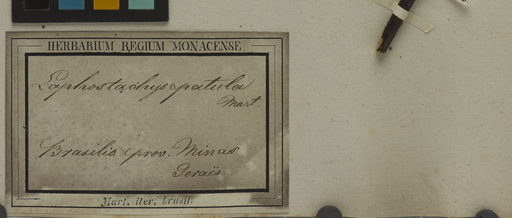 HERBARIUM REGIUM MONACENSE.
Lophostachys patula
Mart.
Brasilia prov. Minas
Geraës.
Mart. iter. brasil.